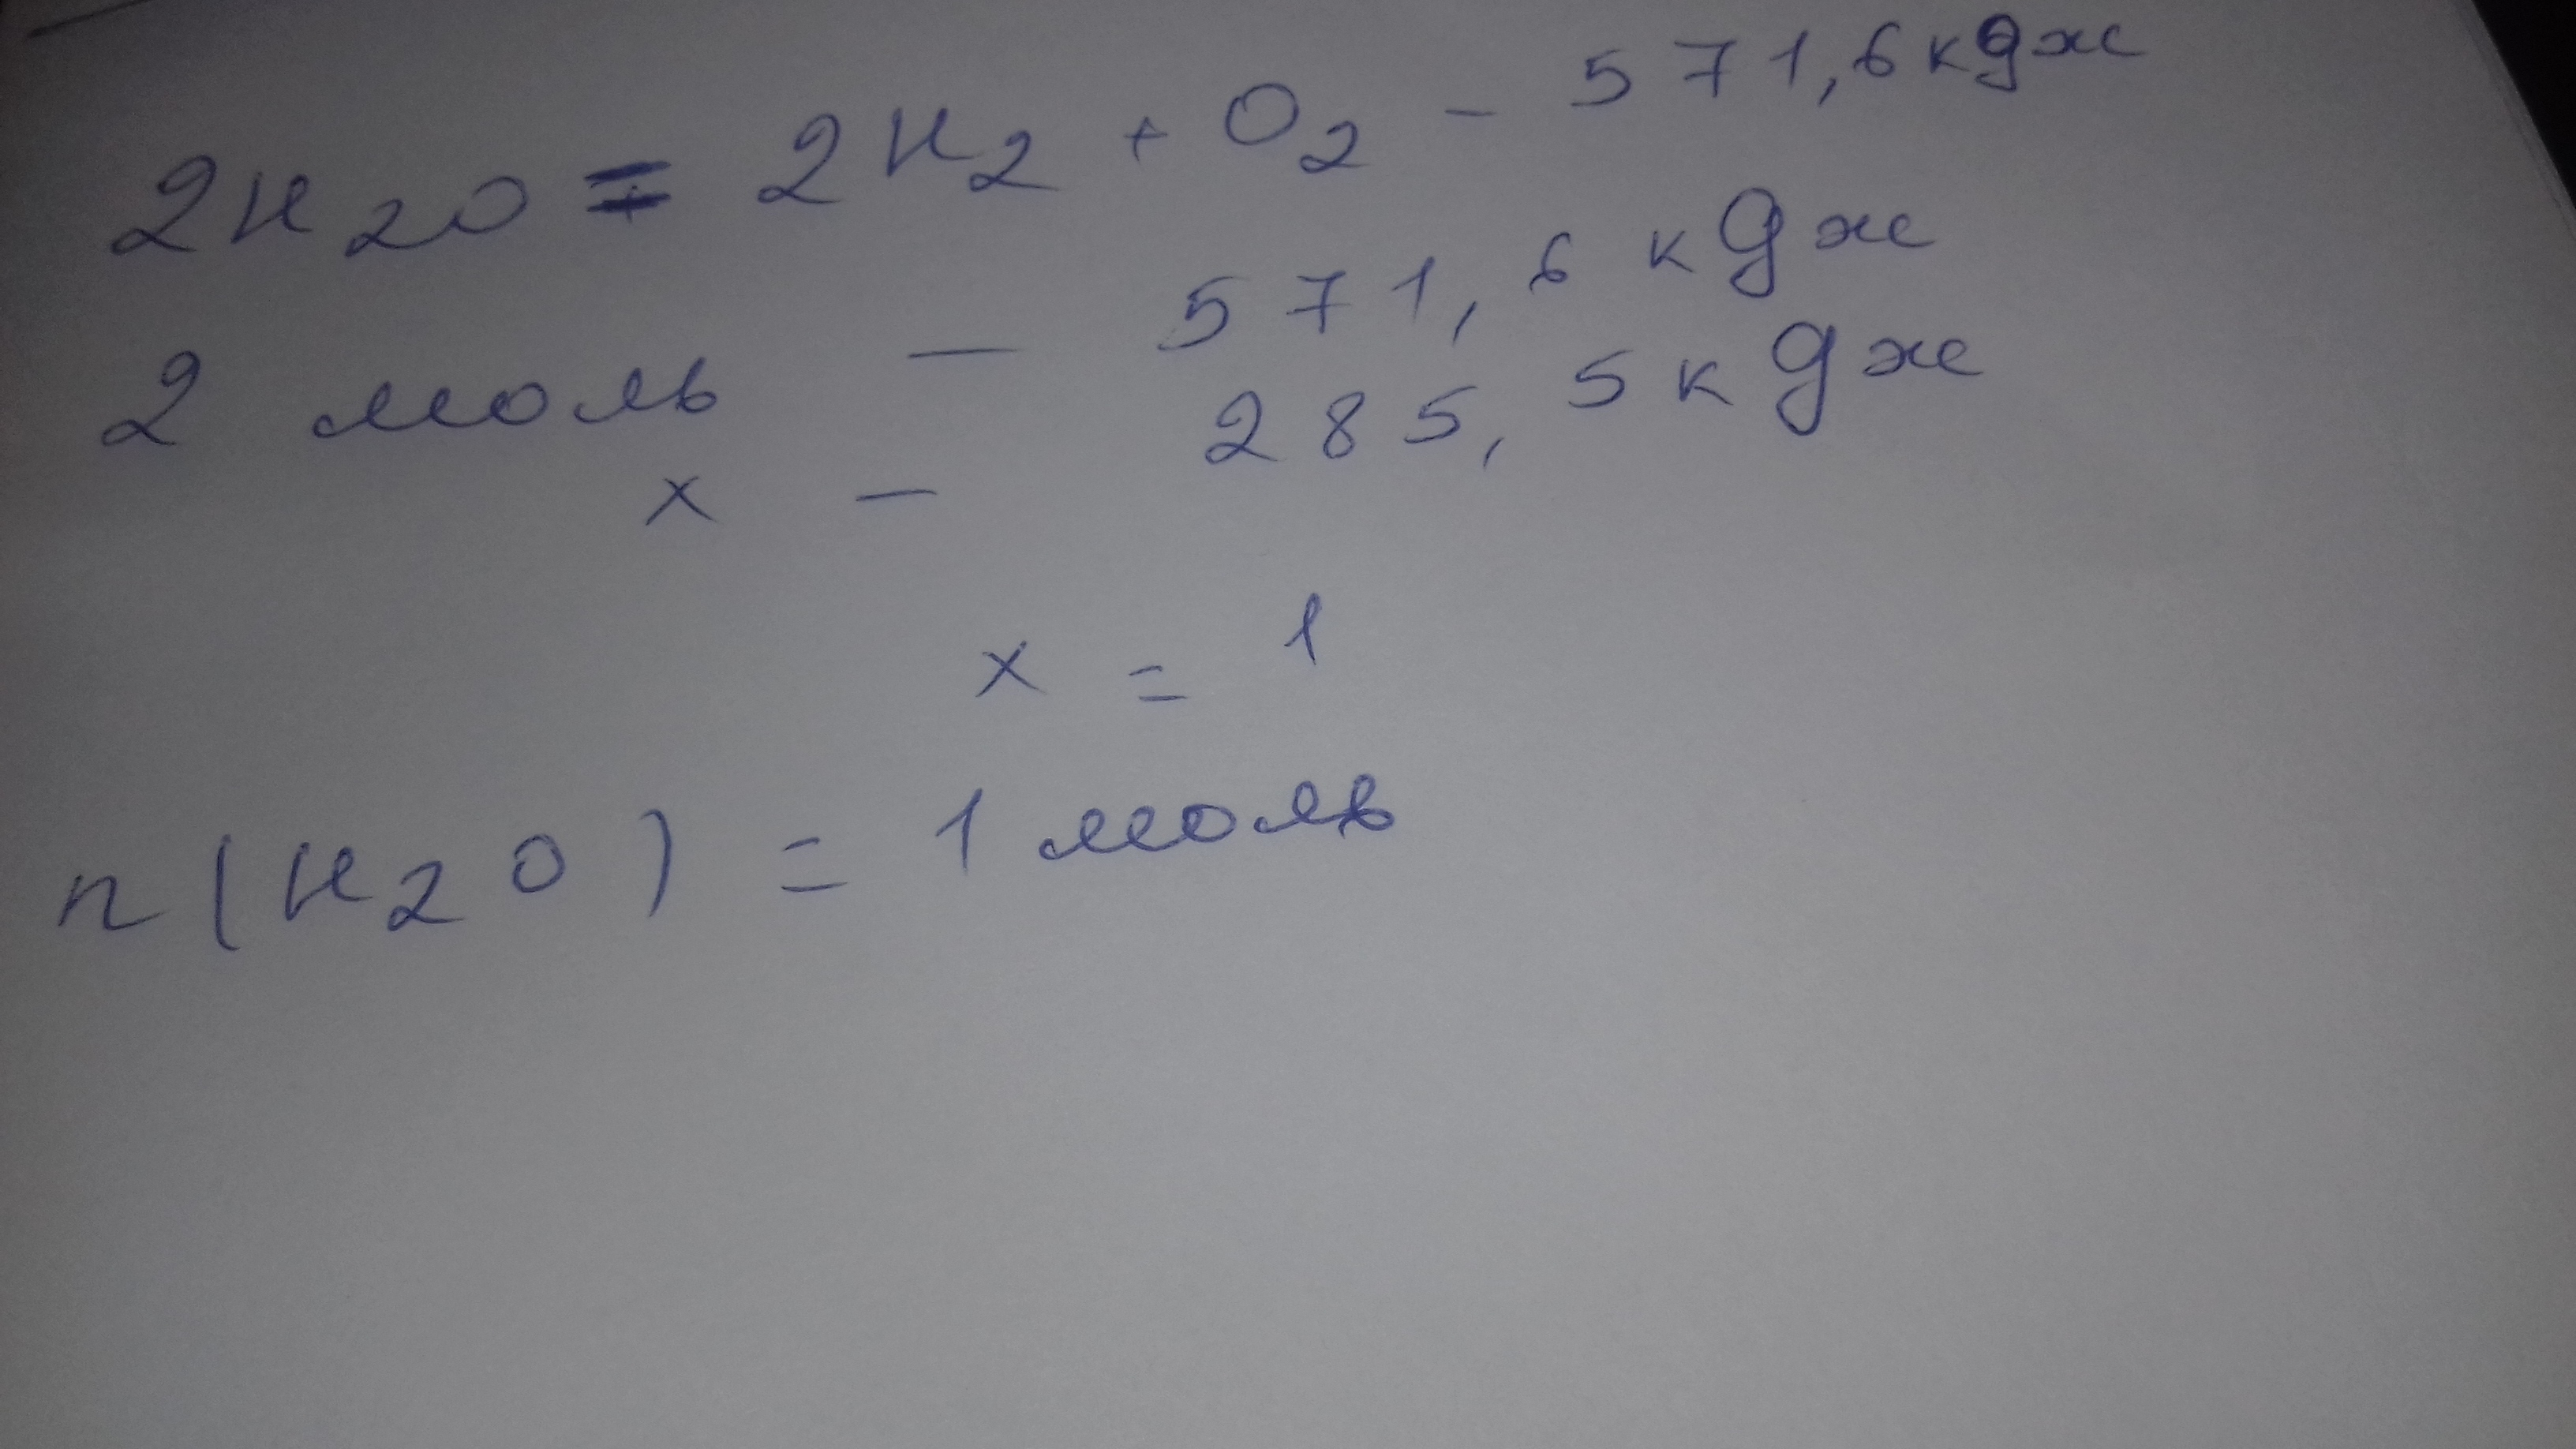 2H2O = 2H2 + O2 - 571,6 кДж
2 моль — 571,6 кДж
x — 285,5 кДж
x = 1
n(H2O) = 1 моль